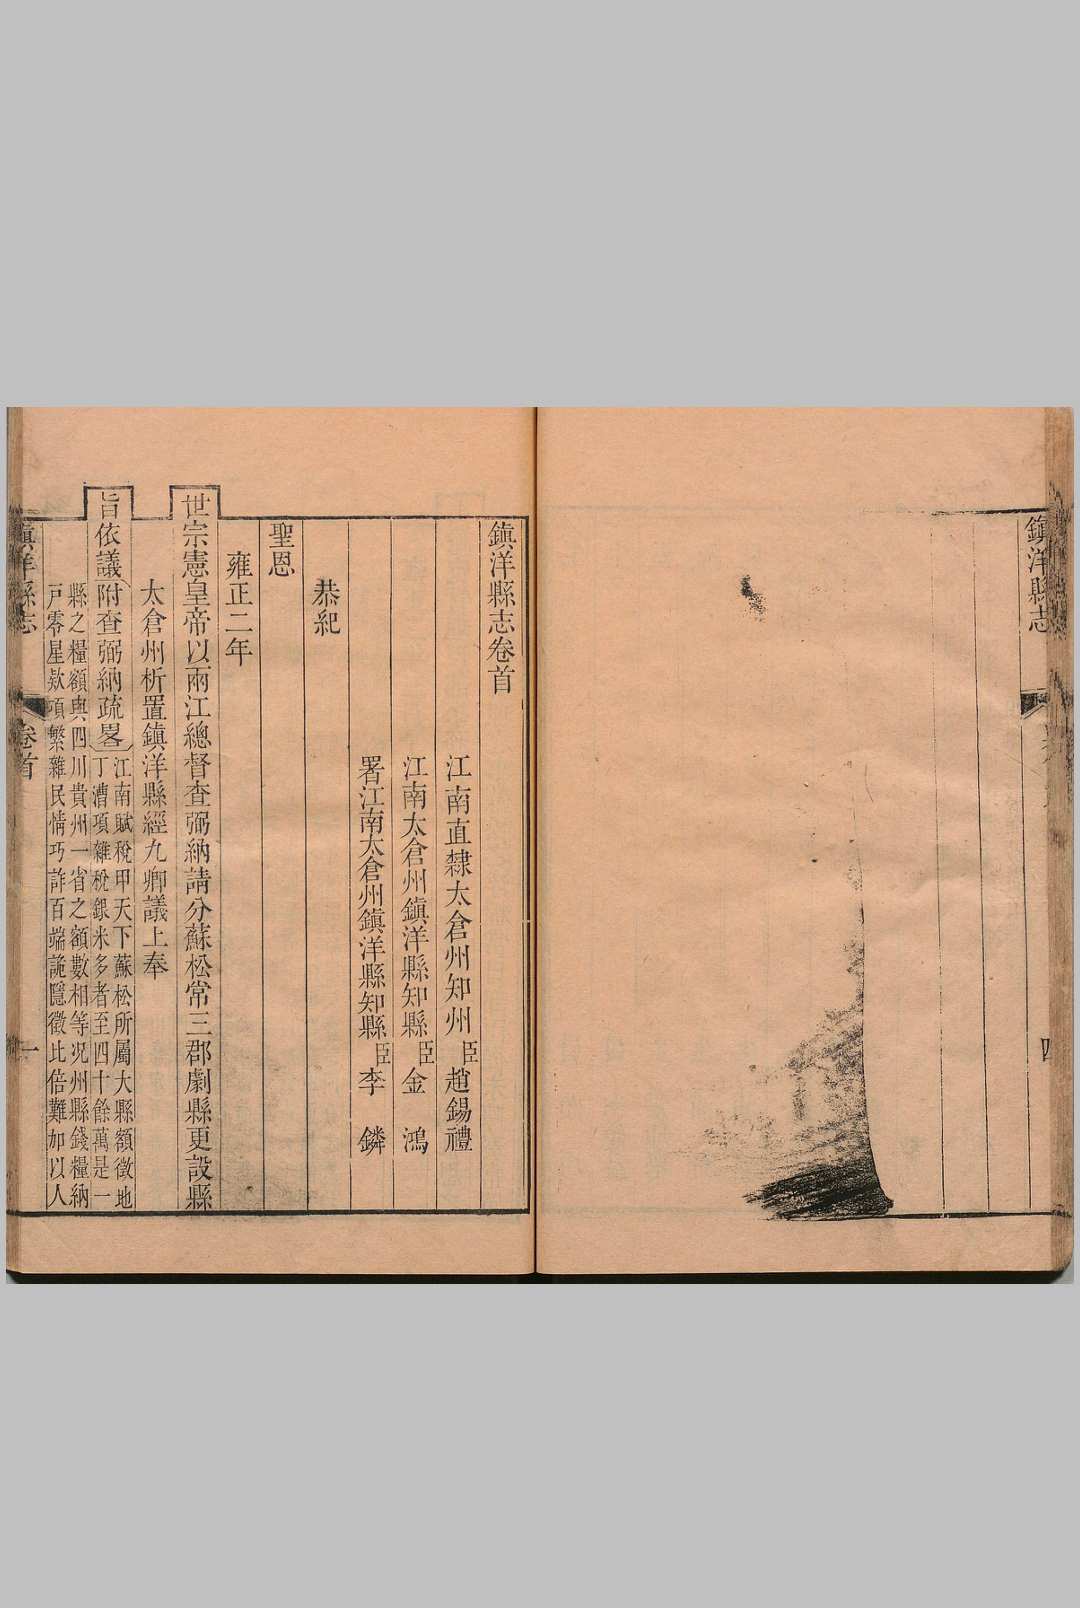 鎮洋縣志
四
鎮洋縣志卷首
江南直隸太倉州知州臣趙錫禮
江南太倉州鎮洋縣知縣臣金鴻
署江南太倉州鎮洋縣知縣臣李鏻
恭紀
聖恩
雍正二年
世宗憲皇帝以兩江總督查弼納請分蘇松常三郡劇縣更設縣
太倉州析置鎮洋縣經九卿議上奉
旨依議附查弼納疏畧江南賦稅甲天下蘇松所屬大縣額徵地
丁漕項雜稅銀米多者至四十餘萬是一
縣之糧額與四川貴州一省之額數相等况州縣錢糧納
戶零星欵項繁雜民情巧詐百端詭隱徵比倍難加以人
鎮洋縣志
卷首
一